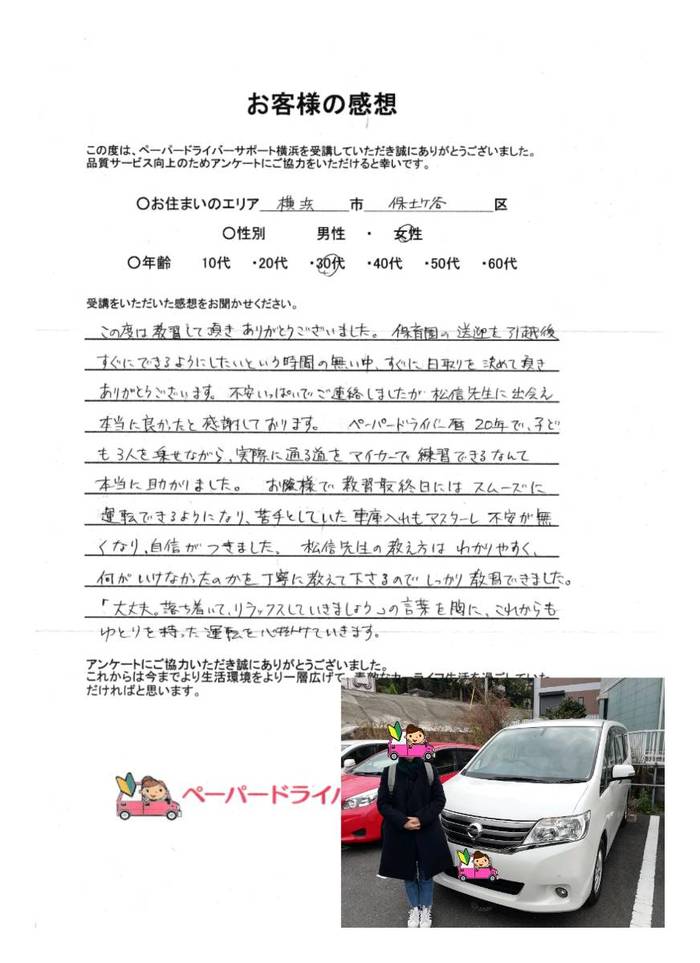 お客様の感想
この度は、ペーパードライバーサポート横浜を受講していただき誠にありがとうございました。
品質サービス向上のためアンケートにご協力をいただけると幸いです。
〇お住まいのエリア 横浜 市 保土ヶ谷 区
〇性別 男性 ・ 女性
〇年齢 10代 ・20代 ・30代 ・40代 ・50代 ・60代
受講をいただいた感想をお聞かせください。
この度は教習して頂き ありがとうございました。 保育園の 送迎を 引越後
すぐにできるようにしたいという時間の無い中、すぐに日取りを決めて頂き
ありがとうございます。 不安いっぱいでご連絡しましたが 松信先生に出会え
本当に良かったと 感謝しております。 ペーパードライバー暦 20年で、子ど
も3人を乗せながら、実際に通る道を マイカーで 練習できるなんて
本当に助かりました。 お陰様で 教習最終日には スムーズに
運転できるようになり、苦手としていた 車庫入れもマスターし 不安が無
くなり、自信が つきました。 松信先生の教え方は わかりやすく、
何がいけなかったのかを丁寧に教えて下さるので しっかり 教習できました。
「大丈夫。落ち着いて、リラックスしていきましょう」の言葉を胸に、これからも
ゆとりを持った 運転を心掛けていきます。
アンケートにご協力いただき誠にありがとうございました。
これからは今までより生活環境をより一層広げて、素敵なカーライフ生活を過ごしていた
だければと思います。
ペーパードライバ